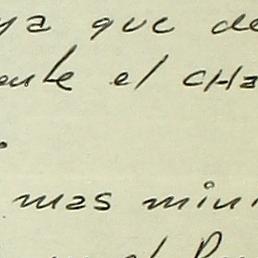 ya que de
ente el cha
mas mini
el